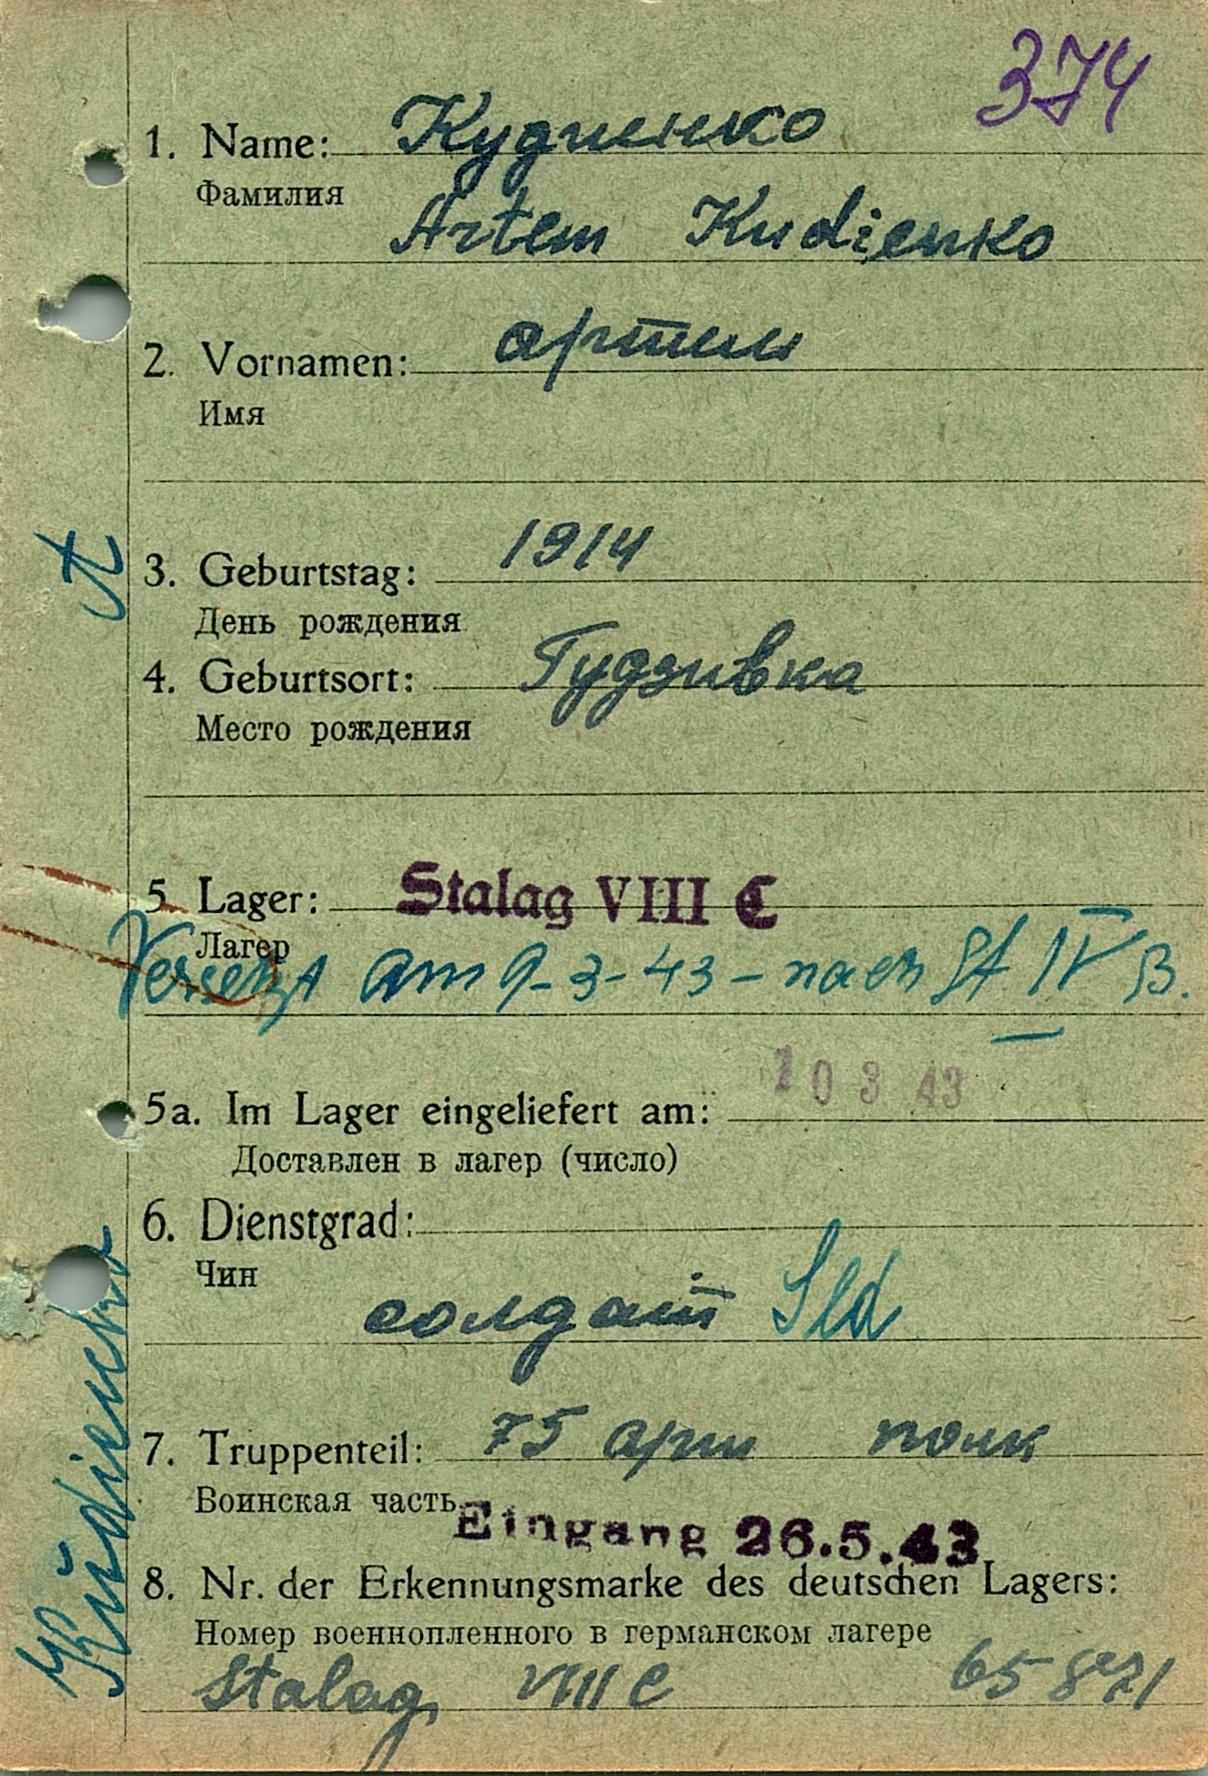 374
1. Name: Кудиенко
Фамилия
Artem Kudienko
2. Vornamen: артим
Имя
3. Geburtstag: 1914
День рождения
4. Geburtsort: Гудзивка
Место рождения
5. Lager: Stalag VIII C
Лагер
Versetzt am 9-3-43- nach St IV B.
5a. Im Lager eingeliefert am: 10 3 43
Доставлен в лагер (число)
6. Dienstgrad:
Чин
солдат Sld
7. Truppenteil: 75 арти полк
Воинская часть
Eingang 26.5.43
8. Nr. der Erkennungsmarke des deutschen Lagers:
Номер военнопленного в германском лагере
Stalag VIII C
Kudienko